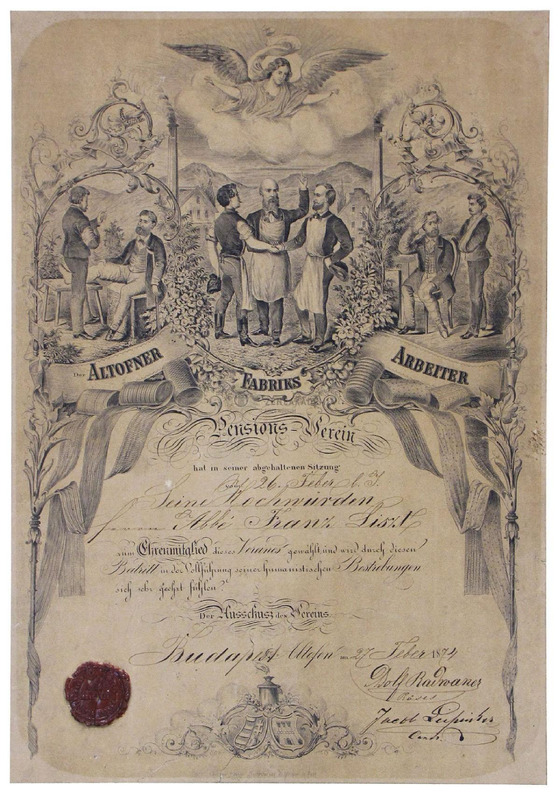 Der ALTOFNER FABRIKS ARBEITER
Pensions-Verein
hat in seiner abgehaltenen Sitzung
26. Feber l. J.
Seine Hochwürden
Herrn Abbé Franz Liszt
zum Ehrenmitglied dieses Vereines gewählt und wird durch diesen
Beitritt in der Vollführung seiner humanistischen Bestrebungen
sich sehr geehrt fühlen.
Der Ausschusz des Vereins.
Budapest Altofen am 27 Feber 1874